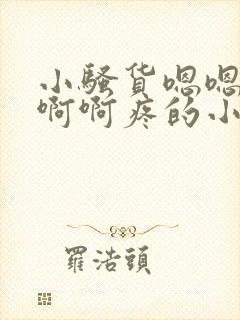 小骚货嗯嗯
啊啊疼的小
羅浩頭